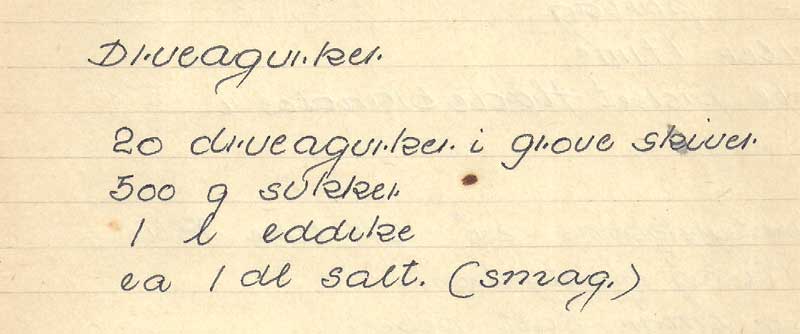 Drueagurker
20 drueagurker i grove skiver
500 g sukker
1 l eddike
ca 1 dl salt. (smag.)